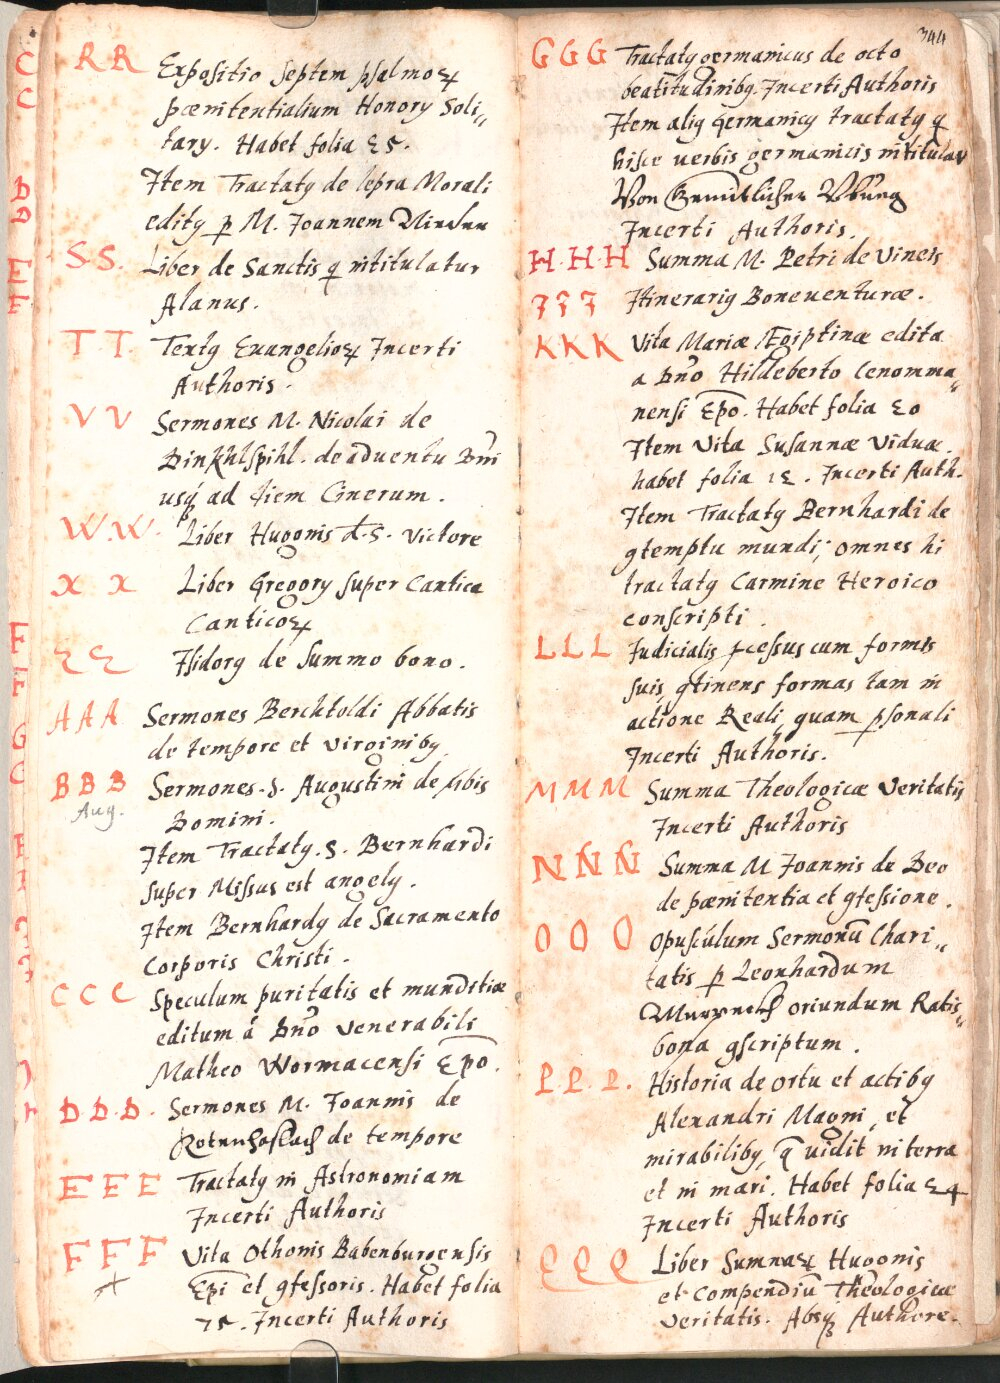 RR Expositio septem psalmoꝝ
pœnitentialium Honorij Soli„
tary. Habet folia 25.
Item Tractatꝰ de lepra Morali
editꝰ ꝑ M. Joannem Nieder
SS. Liber de Sanctis qͥ intitulatur
Alanus.
TT Textꝰ Euangelioꝝ Incerti
Authoris.
VV Sermones M. Nicolai de
Dinkhlspihl. de aduentu Dnī
usqꝫ ad diem Cinerum.
W.W. Liber Hugonis d. S. Victore
XX Liber Gregory super Cantica
Canticoꝝ
ZZ Isidorꝰ de Summo bono.
AAA Sermones Berchtoldi Abbatis
de tempore et virginibꝰ
BBB Sermones. S. Augustini de ꝟbis
Aug. Domini.
Item Tractatꝰ. S. Bernhardi
super Missus est angelꝰ.
Item Bernhardꝰ de Sacramento
Corporis Christi.
CCC Speculum puritatis et munditiæ
editum á Dnō Venerabili
Matheo Wormacensi Epō.
D.D.D. Sermones M. Joannis de
de tempore
EEE Tractatꝰ in Astronomiam
Incerti Authoris
FFF Vita Othonis Babenburgensis
Epī et ꝯfessoris. Habet folia
75. Incerti Authoris
344
GGG Tractatꝰ germanicus de octo
beatitudinibꝰ. Incerti Authoris
Item aliꝰ Germanicꝰ tractatꝰ qͥ
hisce uerbis germanicis intitulaꝛ
Von Vbung
Incerti Authoris.
H.H.H Summa M. Petri de Vineis
JJJ Itinerariꝰ Boneuenturæ.
KKK Vita Mariæ Ægiptinæ edita
a Dnō Hildeberto Cenomma„
nensi Epō. Habet folia 20
Item Vita Susannæ Viduæ.
habet folia 12. Incerti Auth.
Item Tractatꝰ Bernhardi de
ꝯtemptu mundi; omnes hi
tractatꝰ Carmine Heroico
conscripti.
LLL Judicialis ꝓcessus cum formis
suis, ꝯtinens formas tam in
actione Reali, quam ꝑsonali
Incerti Authoris.
MMM Summa Theologicæ Veritatis
Incerti Authoris
NNN Summa M Joannis de Deo
de pœnitentia et ꝯfessione.
OOO Opusculum Sermonū Chari„
tatis ꝑ Leonhardum
oriundum Ratis„
bona ꝯscriptum.
PP.P. Historia de ortu et actibꝰ
Alexandri Magni, et
mirabilibꝰ, q̄ uidit in terra
et in mari. Habet folia 24
Incerti Authoris
QQQ Liber Summaꝝ Hugonis
et Compendiū Theologicæ
Veritatis. Absqꝫ Authore.